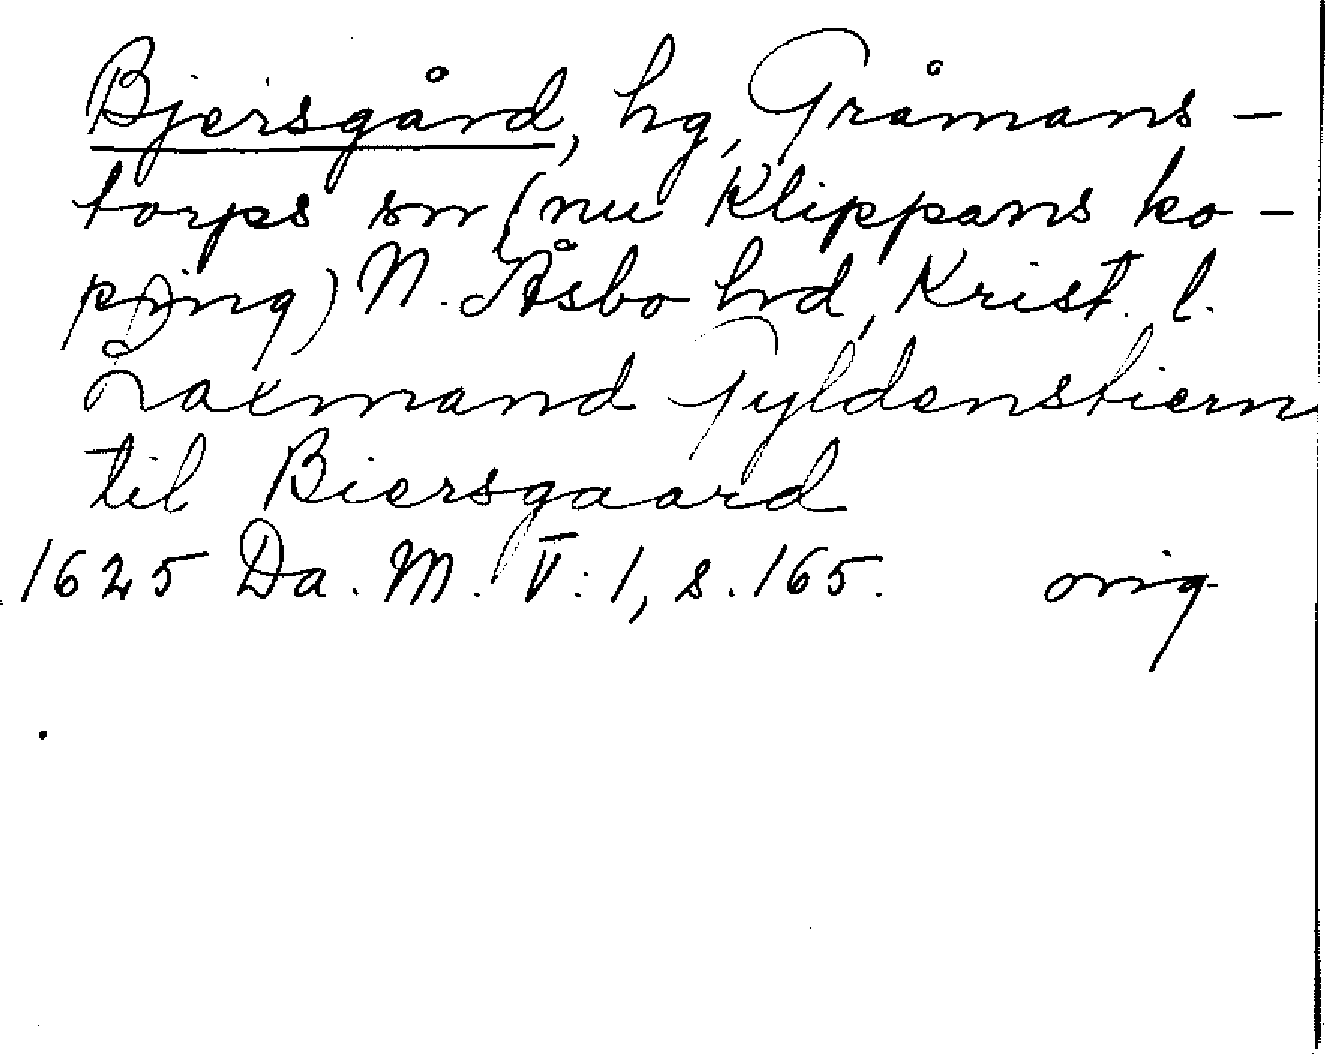 Bjersgård, hg, Gråmans-
torps sn (nu Klippans ko-
ping) N. Åsbo hd, Krist. l.
Laxmand Gyldenstiern
til Biersgaard
1625 Da. M. V: 1, s. 165. orig